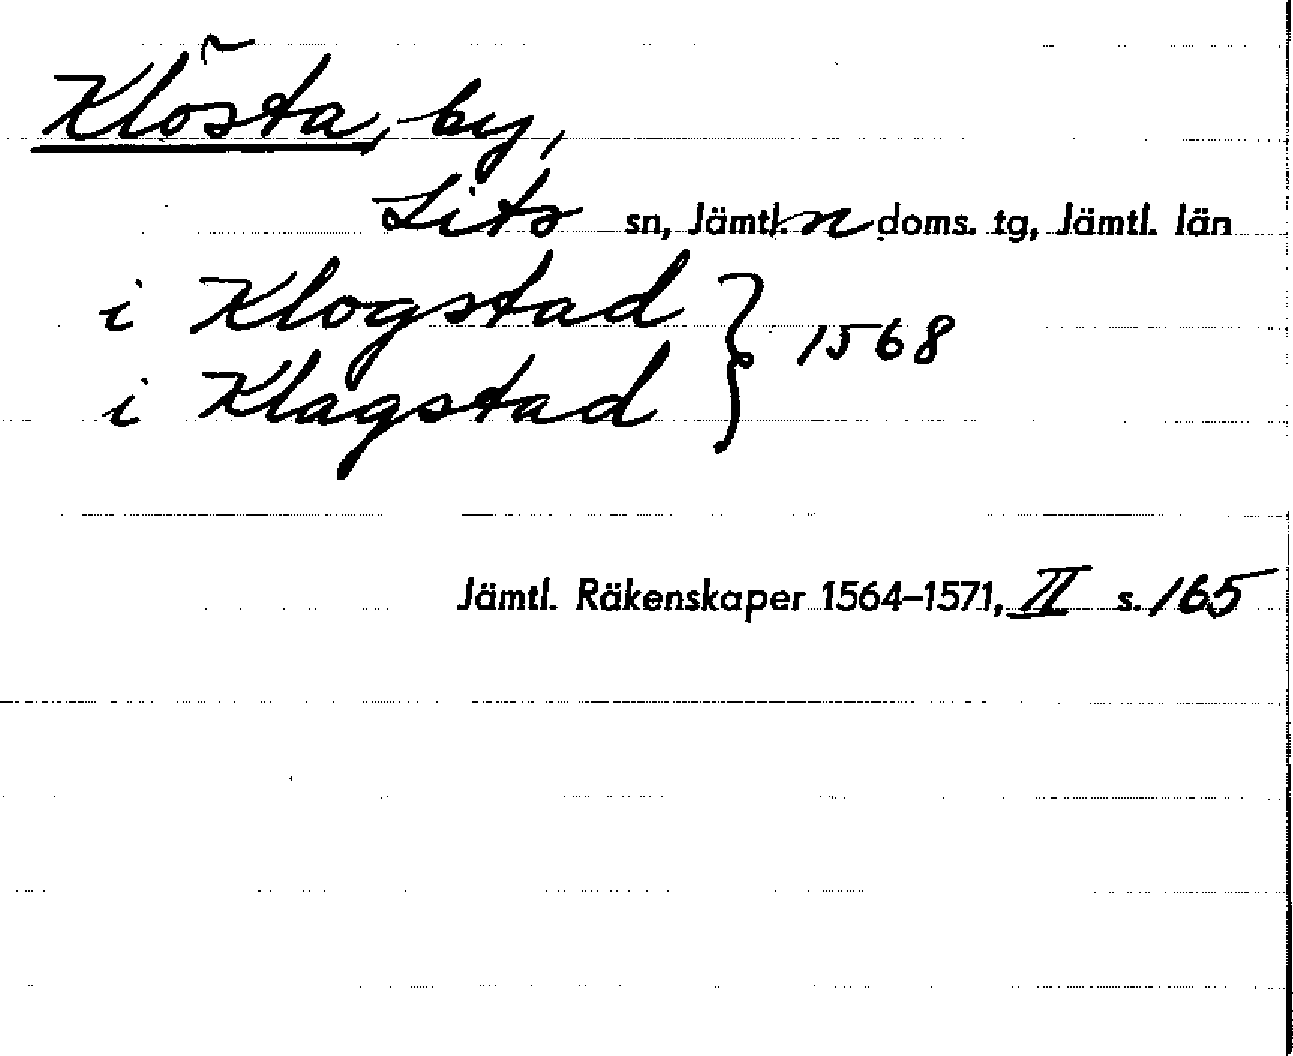 Klösta, by,
Lits sn, Jämtl. n doms. tg, Jämtl. län
i Klogstad } 1568
i Klagstad
Jämtl. Räkenskaper 1564–1571, II s. 165